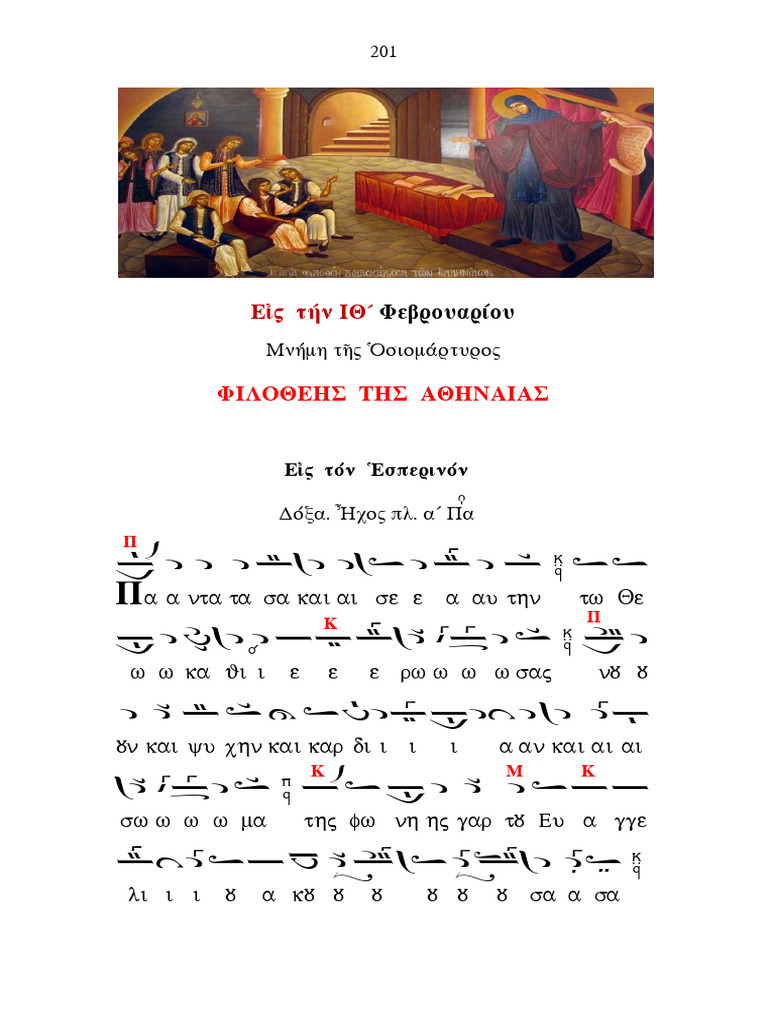 201
Εἰς τήν ΙΘ´ Φεβρουαρίου
Μνήμη τῆς Ὁσιομάρτυρος
ΦΙΛΟΘΕΗΣ ΤΗΣ ΑΘΗΝΑΙΑΣ
Εἰς τόν Ἑσπερινόν
Δόξα. Ἦχος πλ. α´ Πα
Π
Πα α ντα τα σα και αι σε ε α αυ την τω Θε
Κ Π
ω ω κα θι ι ε ε ε ρω ω ω ω σας νȣ ȣ
ȣν και ψυ χην και καρ δι ι ι ι α αν και αι αι
Κ Μ Κ
σω ω ω ω μα της φω νη ης γαρ τȣ Ευ α γγε
λι ι ι ȣ α κȣ ȣ ȣ ȣ ȣ ȣ σα α σα